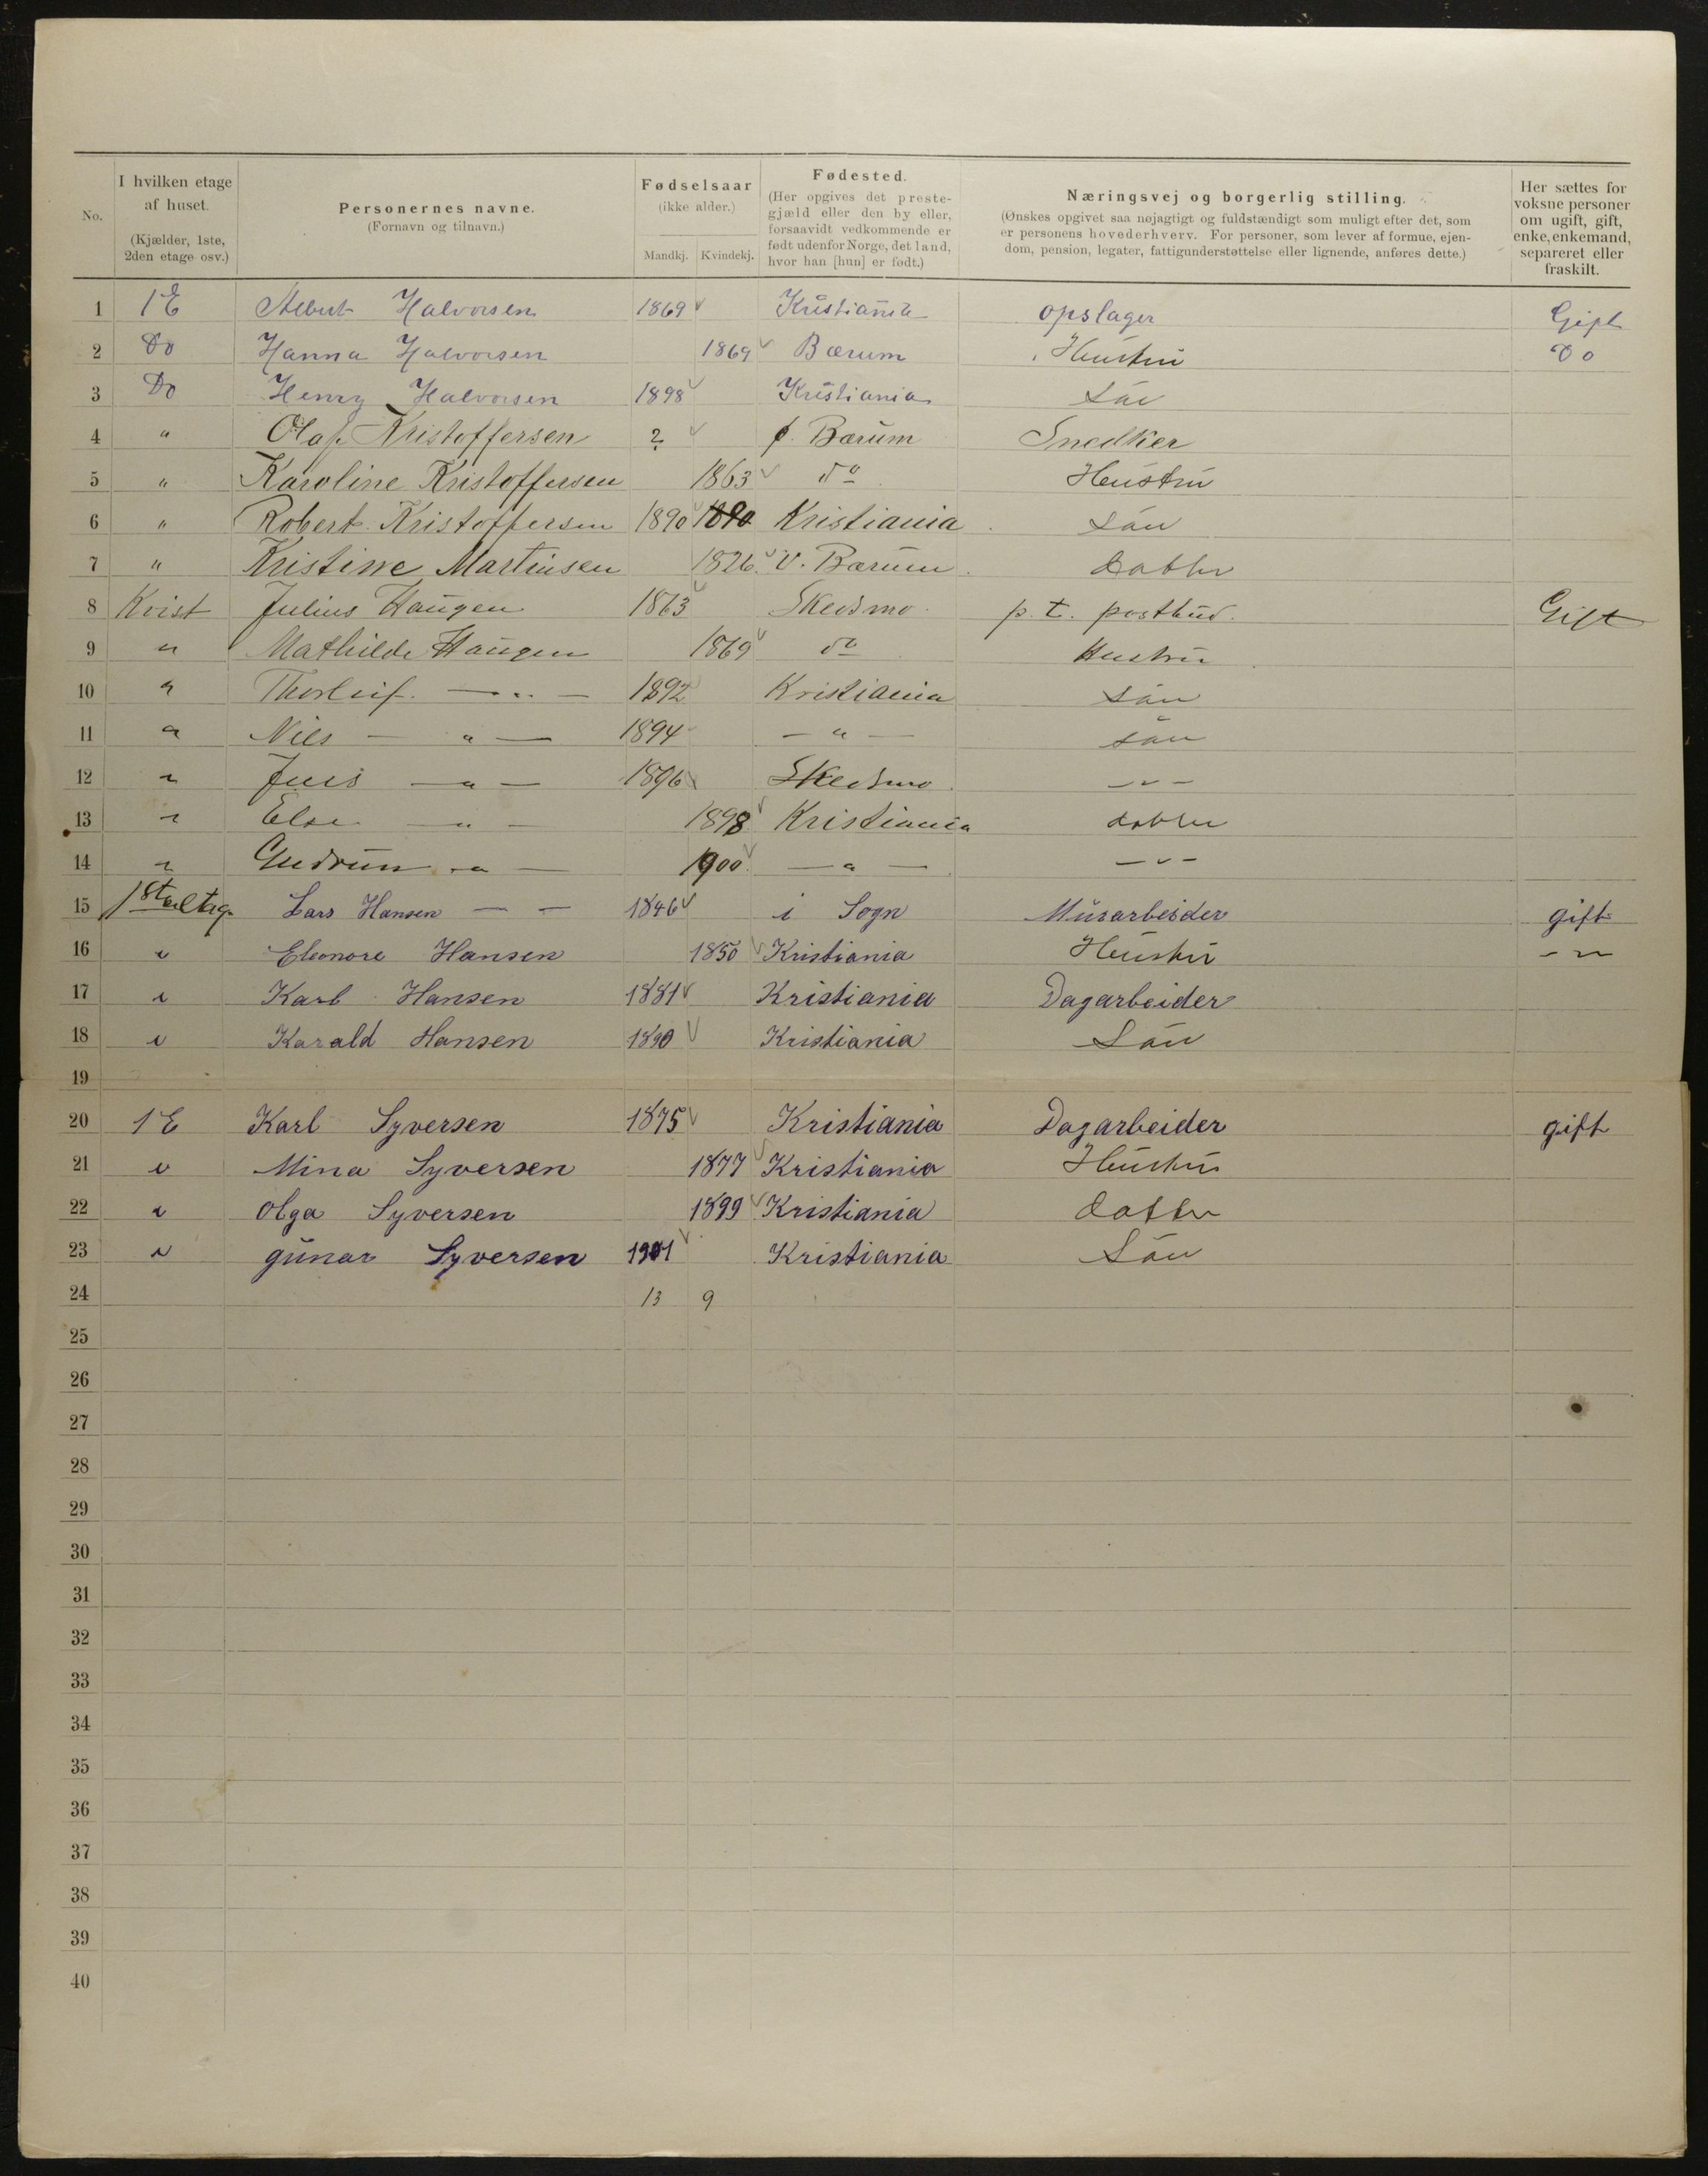 No. | I hvilken etage af huset. (Kjælder, 1ste, 2den etage osv.) | Personernes navne. (Fornavn og tilnavn.) | Fødselsaar (ikke alder.) Mandkj. | Kvindekj. | Fødested. (Her opgives det prestegjæld eller den by eller, forsaavidt vedkommende er født udenfor Norge, det land, hvor han [hun] er født.) | Næringsvej og borgerlig stilling. (Ønskes opgivet saa nøjagtigt og fuldstændigt som muligt efter det, som er personens hovederhverv. For personer, som lever af formue, ejendom, pension, legater, fattigunderstøttelse eller lignende, anføres dette.) | Her sættes for voksne personer om ugift, gift, enke, enkemand, separeret eller fraskilt.
1 1E Albert Halvorsen 1869 Kristiania opslager Gift
2 Do Hanna Halvorsen 1869 Bærum Hustru Do
3 Do Henry Halvorsen 1898 Kristiania Søn
4 " Olaf Kristoffersen ? Bærum Snedker
5 " Karoline Kristoffersen 1863 do Hustru
6 " Robert Kristoffersen 1890 1890 Kristiania Søn
7 " Kristine Martinsen 1826 V. Bærum Datter
8 Kvist Julius Haugen 1863 Skedsmo p. t. postbud. Gift
9 " Mathilde Haugen 1869 do Hustru
10 " Thorleif — " — 1892 Kristiania Søn
11 " Nils — " — 1894 — " — Søn
12 " Jens — " — 1896 Skedsmo — " —
13 " Else — " — 1898 Kristiania datter
14 " Gudrun — " — 1900 — " — — " —
15 1ste etag. Lars Hansen — — 1846 i Sogn Murarbeider gift
16 " Eleonore Hansen 1850 Kristiania Hustru — " —
17 " Karl Hansen 1881 Kristiania Dagarbeider
18 " Karald Hansen 1890 Kristiania Søn
19
20 1E Karl Syversen 1875 Kristiania Dagarbeider gift
21 " Mina Syversen 1877 Kristiania Hustru
22 " Olga Syversen 1899 Kristiania datter
23 " gunar Syversen 1901 Kristiania Søn
24 13 9
25
26
27
28
29
30
31
32
33
34
35
36
37
38
39
40